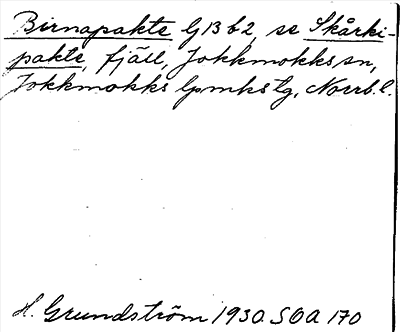 Birnapakte G13b2, se Skårki-
pakte, fjäll, Jokkmokks sn,
Jokkmokks lpmks tg, Norrb. l.
H. Grundström 1930 SOA 170